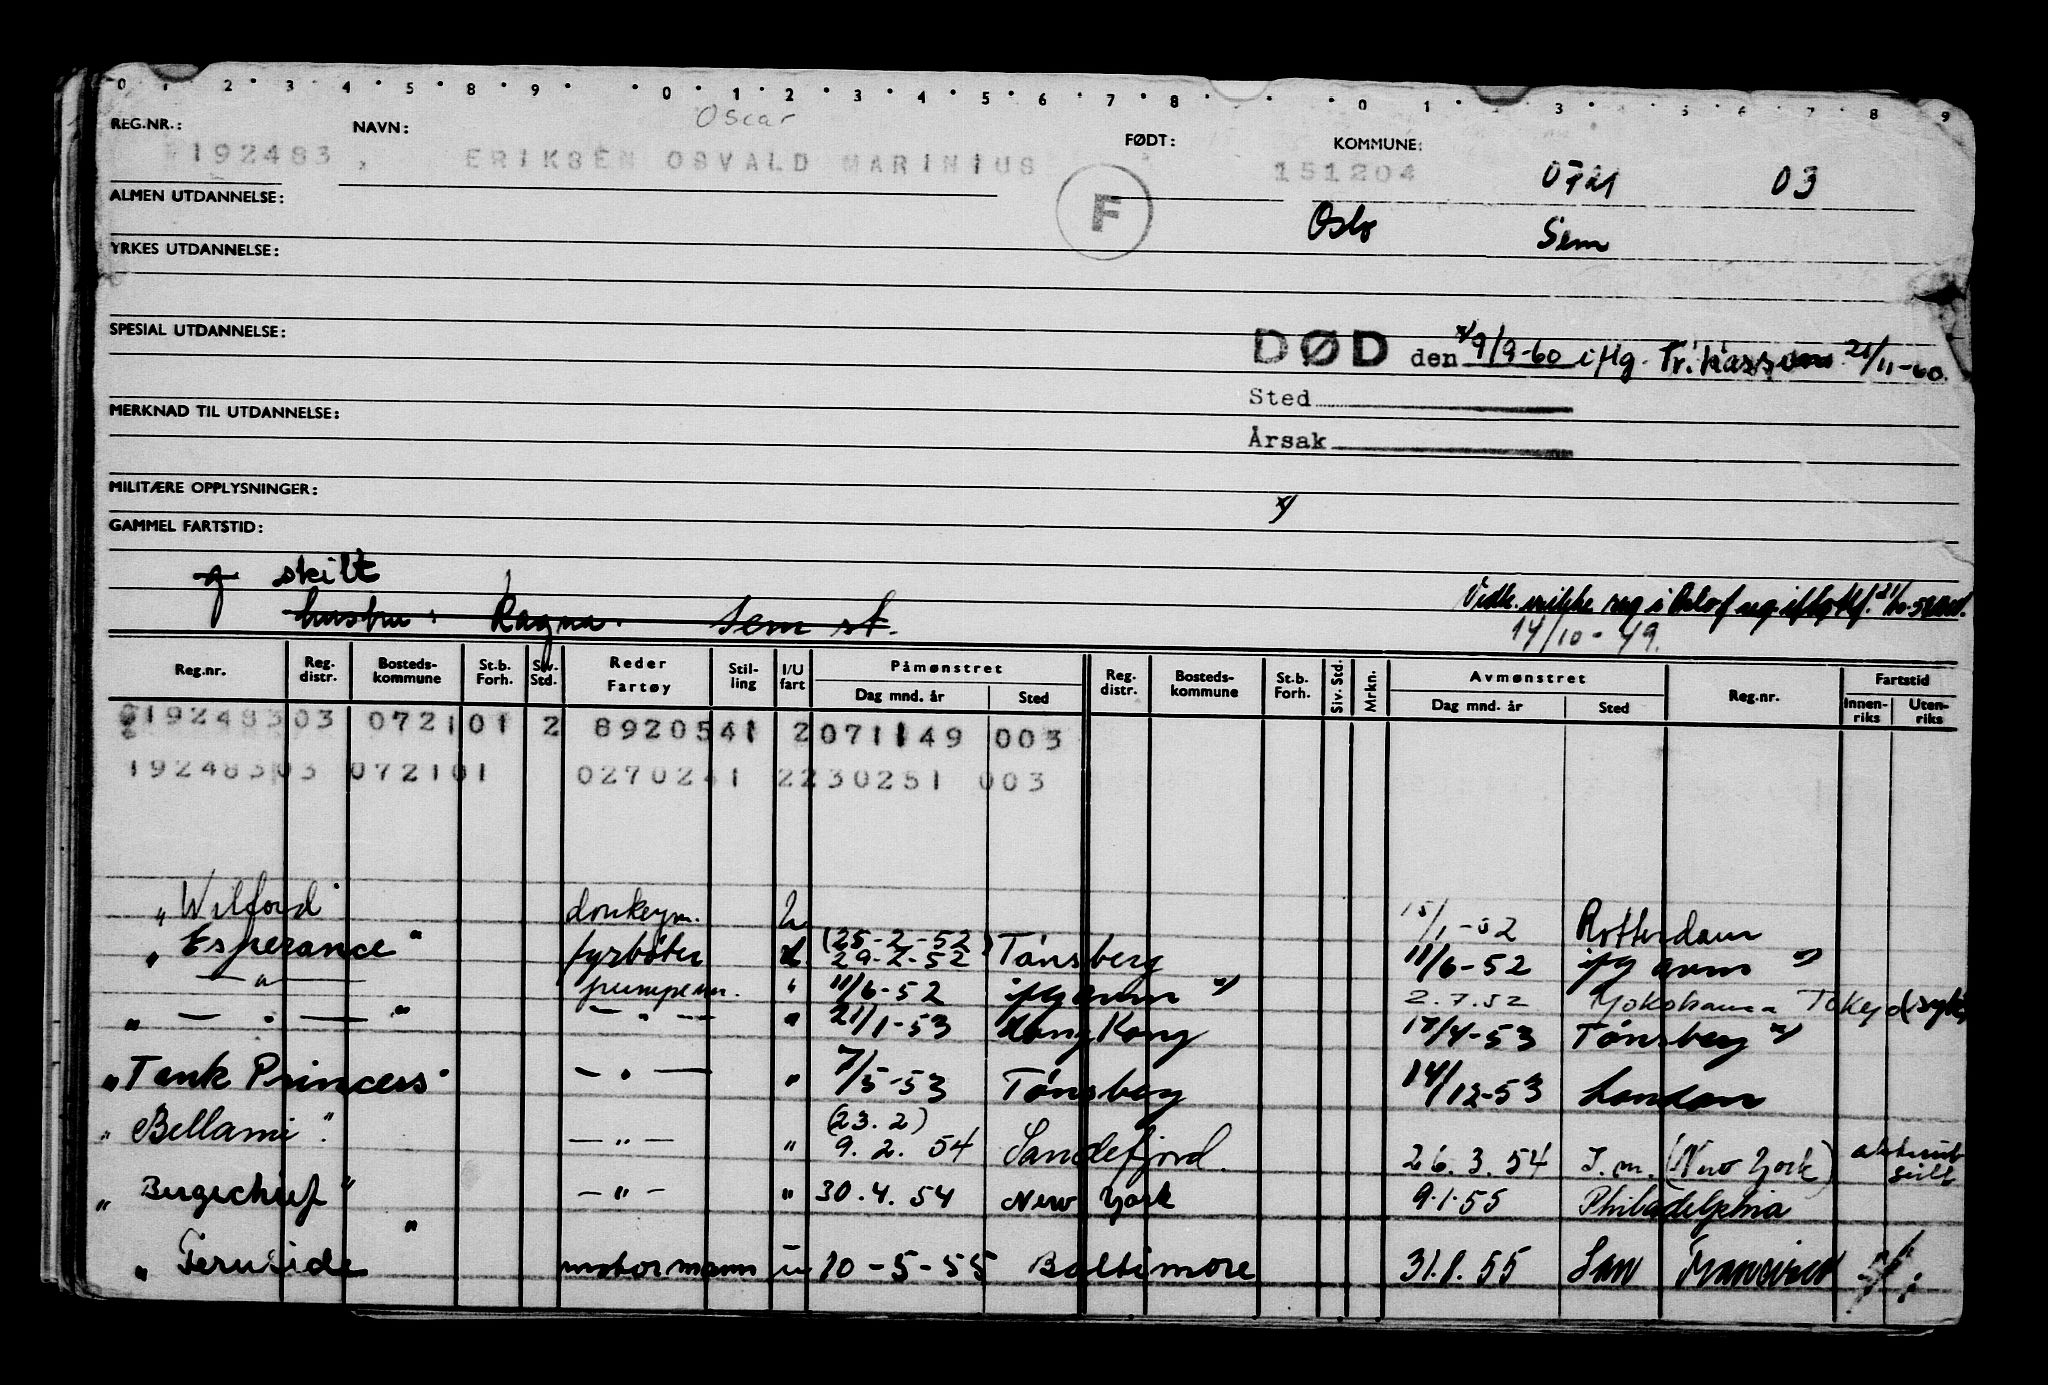 0 1 2 3 4 5 6 7 8 9 0 1 2 3 4 5 6 7 8 0 1 3 5 6 7 8 9
Oscar
REG.NR.: NAVN: FØDT: KOMMUNE:
192483 ERIKSEN OSVALD MARINIUS 151204 0721 03
ALMEN UTDANNELSE: F Oslo Sem
YRKES UTDANNELSE:
SPESIAL UTDANNELSE:
DØD den x/ 9/9-60 ifg. Tr. kassen 21/11-60.
Sted
MERKNAD TIL UTDANNELSE:
Årsak
MILITÆRE OPPLYSNINGER:
x/
GAMMEL FARTSTID:
g skilt
hustru: Ragna. Sem st.
14/10-49.
Reg.nr. Reg. distr. Bosteds-kommune St.b. Forh. Siv. Std. Reder Fartøy Stil-ling I/U fart Påmønstret Dag mnd. år Sted Reg. distr. Bosteds-kommune St.b. Forh. Siv. Std. Mrkn. Avmønstret Dag mnd. år Sted Reg.nr. Fartstid Innen-riks Uten-riks
192483 03 072101 2 8920541 2071149 003
192483 03 072101 0270241 2230251 003
"Wilford" donkeym. U 15/1-52 Rotterdam
"Esperance" fyrbøter U (25-2-52) 29-2-52 Tønsberg 11/6-52 ifg avm x/
— " — pumpem. " 11/6-52 ifg avm x/ 2.7.52 Yokohama Tokyo (syk)
" — " — " — " — " 21/1-53 Hong Kong 17/4-53 Tønsberg x/
"Tank Princess" — " — " 7/5-53 Tønsberg 14/12-53 London
"Bellami". — " — " (23.2) 9.2.54 Sandefjord. 26.3.54 I.m. (New York)
"Bergechief" — " — " 30.4.54 New York 9.1.55 Philadelphia
"Fernside" motormann u 10-5-55 Baltimore 31.8.55 San Francisco